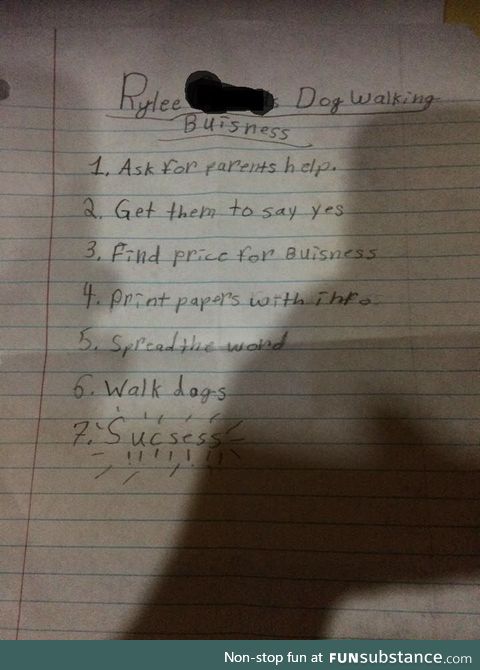 Rylee s Dog Walking
Buisness
1. Ask for parents help.
2. Get them to say yes
3. Find price for Buisness
4. print papers with info.
5. Spread the word
6. Walk dogs
7. Sucsess
Non-stop fun at FUNsubstance.com